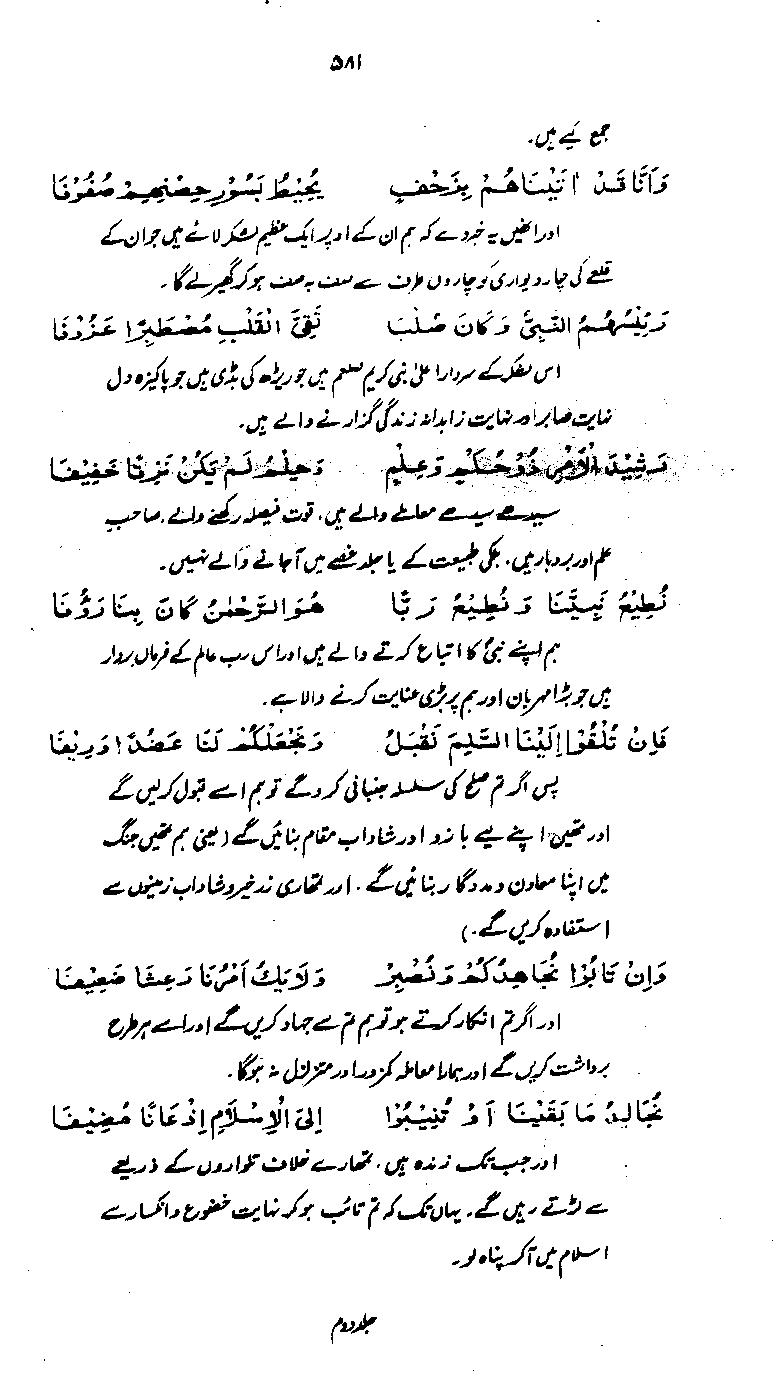 ۵۸۱
جمع کیے ہیں۔
وَاَنَّا قَدْ اَتَيْنَاهُمْ بِزَحْفٍ يُحِيْطُ بِسُوْرِ حِصْنِهِمْ صُفُوْفَا
اور انھیں یہ خبر دے کہ ہم ان کے اوپر ایک عظیم لشکر لائے ہیں جو ان کے
قلعے کی چار دیواری کو چاروں طرف سے صف بہ صف ہو کر گھیر لے گا۔
رَئِيْسُهُمُ النَّبِيُّ وَكَانَ صُلْبًا نَقِيَّ الْقَلْبِ مُصْطَبِرًا عَزُوْفَا
اس لشکر کے سردار اعلیٰ نبی کریم صلعم ہیں جو ریڑھ کی ہڈی ہیں جو پاکیزہ دل
نہایت صابر اور نہایت زاہدانہ زندگی گزارنے والے ہیں۔
رَشِيْدَ الْاَمْرِ ذُوْ حُكْمٍ وَعِلْمٍ وَحِلْمٍ لَمْ يَكُنْ نَزِقًا خَفِيْفَا
سیدھے سیدھے معاملے والے ہیں، قوت فیصلہ رکھنے والے، صاحب
علم اور بردبار ہیں، ہلکی طبیعت کے یا جلد غصے میں آجانے والے نہیں۔
نُطِيْعُ نَبِيَّنَا وَنُطِيْعُ رَبًّا هُوَ الرَّحْمٰنُ كَانَ بِنَا رَؤُفَا
ہم اپنے نبیؐ کا اتباع کرتے والے ہیں اور اس رب عالم کے فرماں بردار
ہیں جو بڑا مہربان اور ہم پر بڑی عنایت کرنے والا ہے۔
فَاِنْ تُلْقُوْا اِلَيْنَا السِّلْمَ نَقْبَلْ وَنَجْعَلْكُمْ لَنَا عَضُدًا وَرِيْفَا
پس اگر تم صلح کی سلسلہ جنبانی کرو گے تو ہم اسے قبول کریں گے
اور تمھیں اپنے لیے بازو اور شاداب مقام بنائیں گے (یعنی ہم تمھیں جنگ
میں اپنا معاون و مددگار بنائیں گے، اور تمھاری زرخیز و شاداب زمینوں سے
استفادہ کریں گے۔)
وَاِنْ تَابَوْا نُجَاهِدْكُمْ وَنَصْبِرْ وَلَا يَكُ اَمْرُنَا رَعِشًا ضَعِيْفَا
اور اگر تم انکار کرتے ہو تو ہم تم سے جہاد کریں گے اور اسے ہر طرح
برداشت کریں گے اور ہمارا معاملہ کمزور اور متزلزل نہ ہوگا۔
نُجَالِدُ مَا بَقَيْنَا اَوْ تُنِيْبُوْا اِلَى الْاِسْلَامِ اِذْعَانًا مُضِيْفَا
اور جب تک زندہ ہیں، تمھارے خلاف تلواروں کے ذریعے
سے لڑتے رہیں گے۔ یہاں تک کہ تم تائب ہو کر نہایت خضوع و انکسار سے
اسلام میں آکر پناہ لو۔
جلد دوم